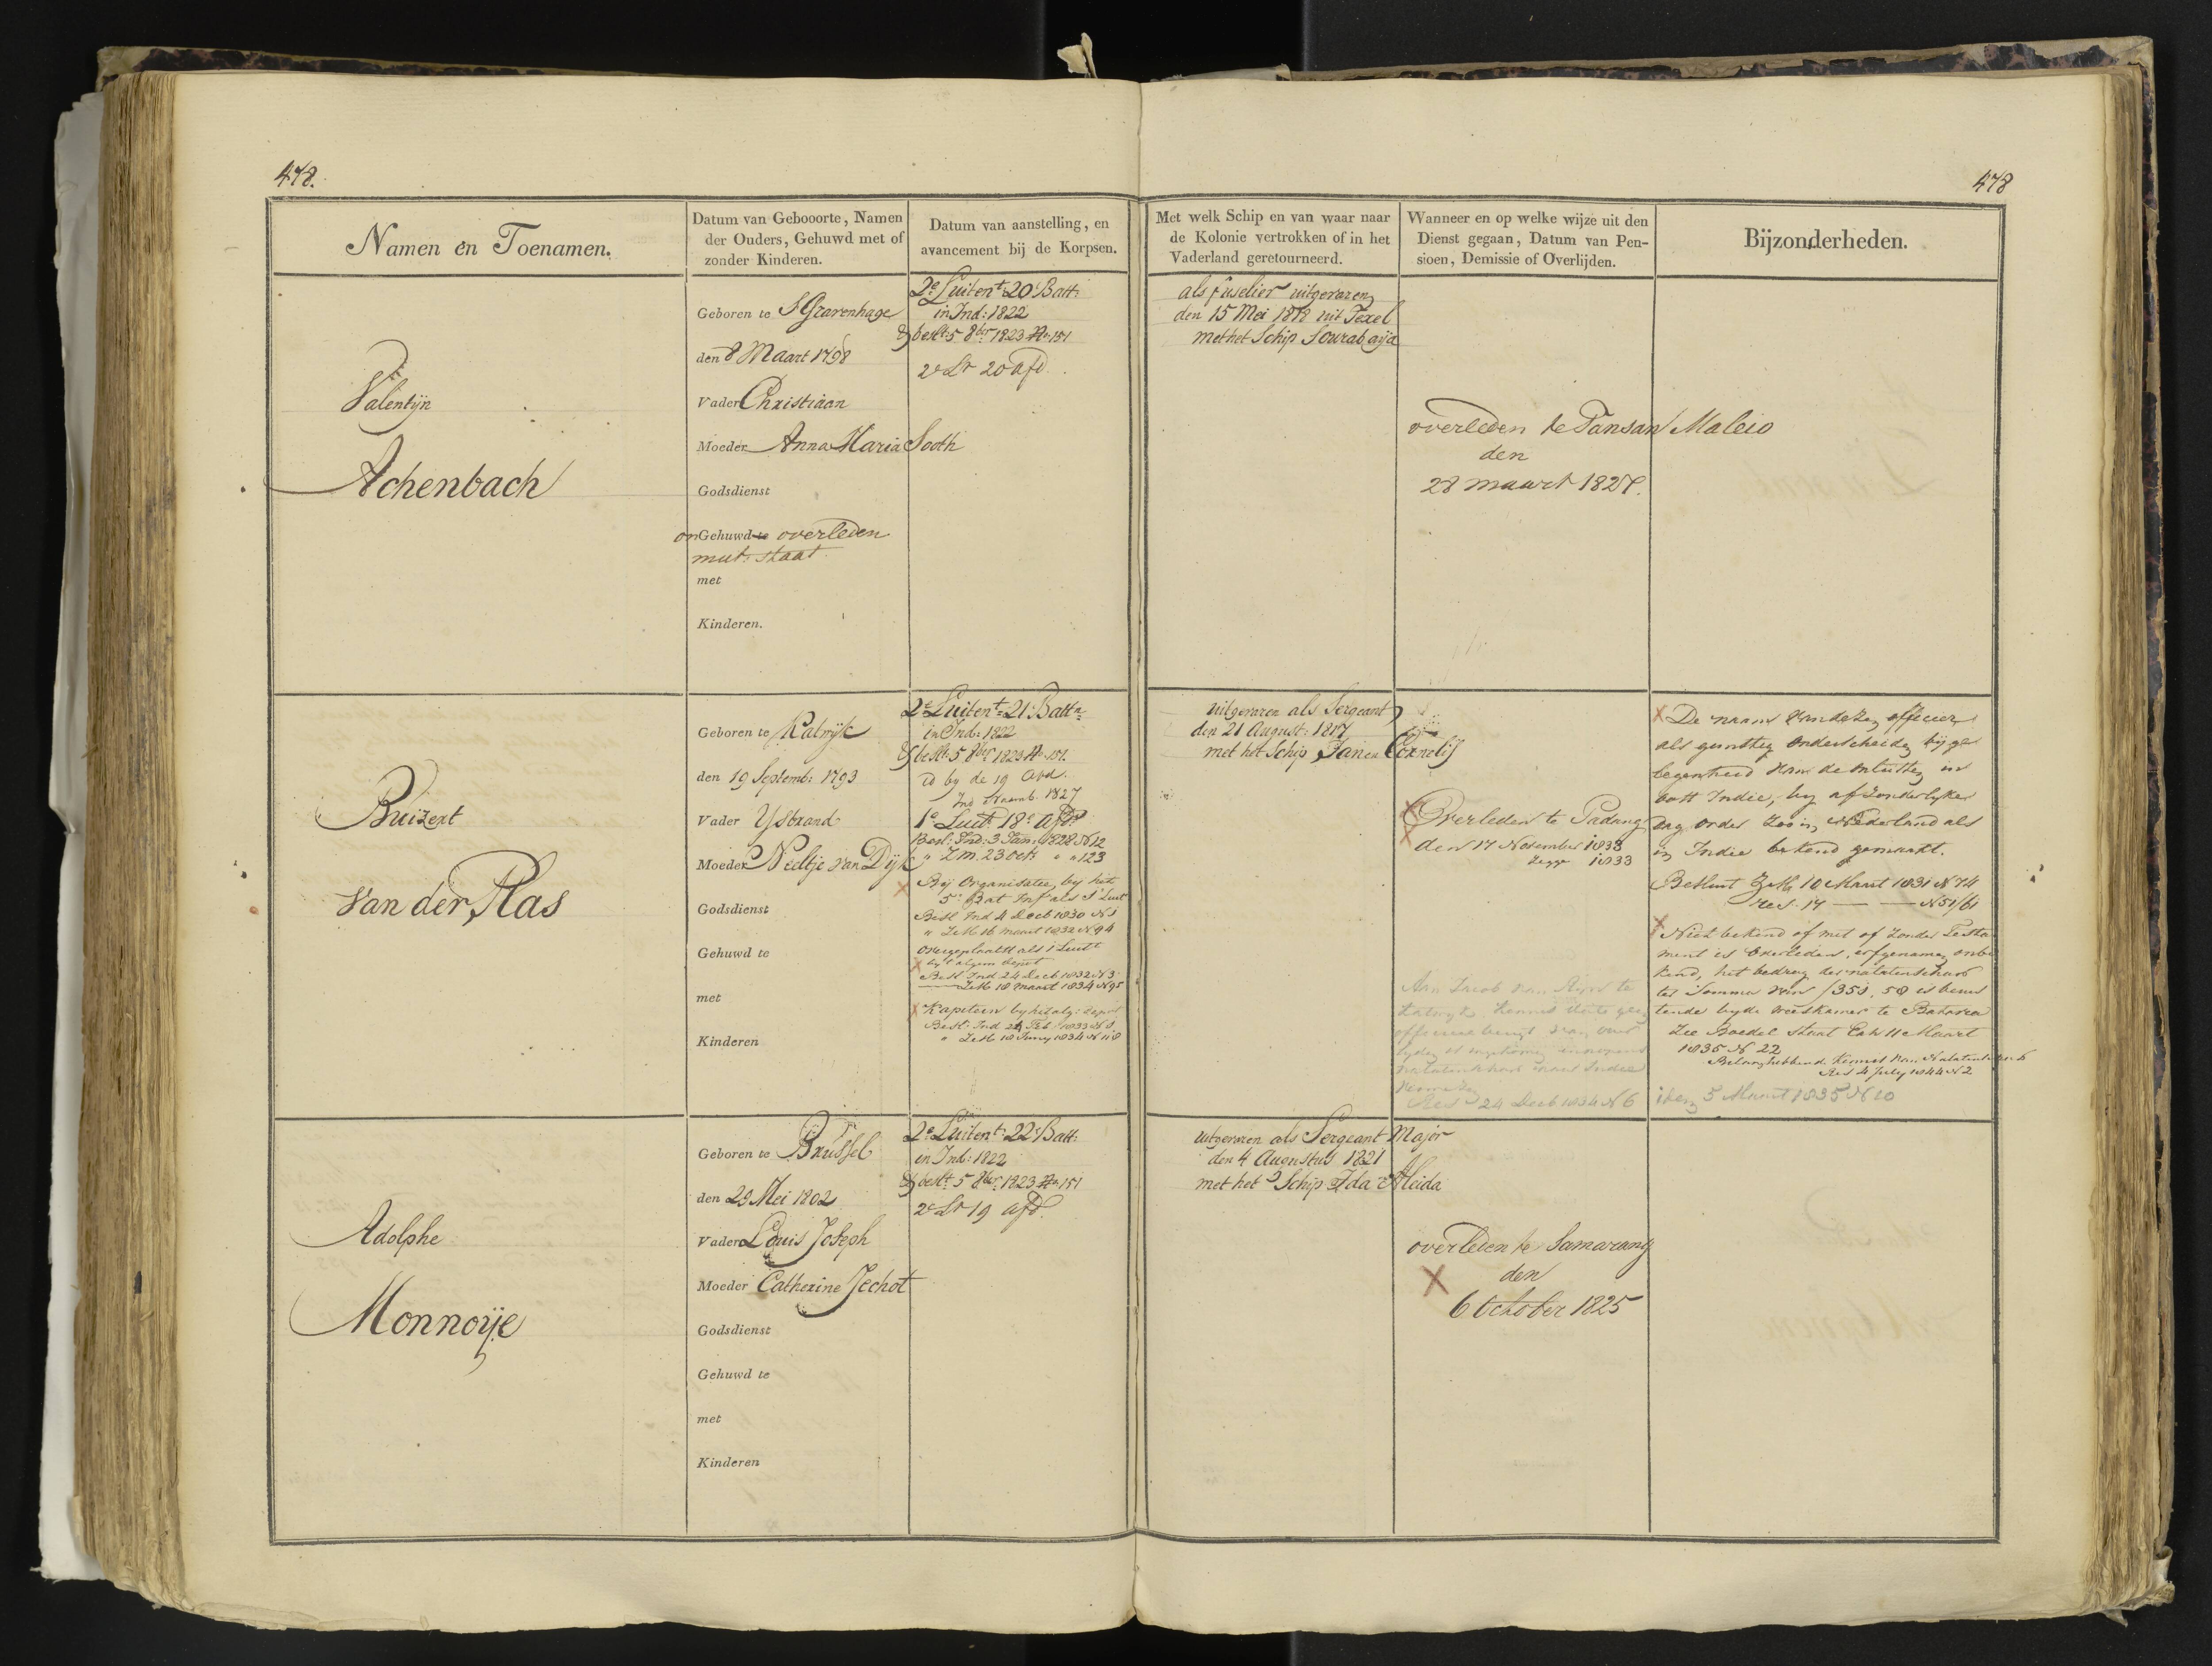 478.
478
Namen en Toenamen.
Datum van Gebooorte, Namen
der Ouders, Gehuwd met of
zonder Kinderen.
Datum van aanstelling, en
avancement bij de Korpsen.
Met welk Schip en van waar naar
de Kolonie vertrokken of in het
Vaderland geretourneerd.
Wanneer en op welke wijze uit den
Dienst gegaan, Datum van Pen-
sioen, Demissie of Overlijden.
Bijzonderheden.
Valentijn
Achenbach
Geboren te S'Gravenhage
den 8 Maart 1798
Vader Christiaan
Moeder Anna Maria Sooth
Godsdienst
onGehuwd te overleden
mut: staat
met
Kinderen.
2e Luitent 20 Batt:
in Ind: 1822
beslt: 5 8ber 1823 No 151
2e Lt 20 afd.
als fuselier uitgevaren
den 15 Mei 1818 uit Texel
met het Schip Sourabaija
overleden te Pansan Maleio
den
28 maart 1827.
Buizert
Van der Plas
Geboren te Katwijk
den 19 Septemb: 1793
Vader IJsbrand
Moeder Neeltje van Dijk
Godsdienst
Gehuwd te
met
Kinderen
2e Luitent 21 Battn
in Ind: 1822
beslt: 5 8ber 1823 No 151.
id by de 19 afd.
Ind Naamb. 1827
1e Luit 18e Afd.
Besl: Ind: 3 Jan: 1828 N 12
" Z M. 23 Oct: " " 123
Bij Organisatie by het
5e Bat Inf als 1e Luit
Besl Ind 4 Decb 1830 N 1
" ZM 16 maart 1832 N 94
Overgeplaatst als 1 Luitt
by 't algem depot
Besl Ind 24 Decb 1832 N 3
ZM 18 maart 1834 N 95
Kapitein by het alg: depot
Besl: Ind 24 Feb 1833 N 1
" ZM 18 Juny 1834 N 118
uitgevaren als Sergeant
den 21 August: 1817
met het Schip Jan en Cornelis
Overleden te Padang
den 17 November 1838
zegge 1833
Aan Jacob van Rijn te
Katwyk kennis
officieele
24 Decb 1834 N 6
De naam van dezen officier
als gunstig onderscheiden bij ge
legenheid van de onlusten in
oost Indie, by afzonderlyke
dag order zoo in Nederland als
in Indie bekend gemaakt.
Besluit ZM 10 Maart 1831 N 74
res. 17 — — N 51/61
Niet bekend of met of zonder Testa
ment is overleden, erfgenamen onbe
kend, het bedrag der nalatenschap
ter Somma van f 351, 58 is berus
tende by de weeskamer te Batavia
Zie Boedel Staat Exh 11 Maart
1835 N 22
Belanghebbend. Kennis van Nalatenschap
Res 4 July 1844 N 2
5 Maart 1835 N 10
Adolphe
Monnoije
Geboren te Brussel
den 29 Mei 1802
Vader Louis Joseph
Moeder Catherine Jechot
Godsdienst
Gehuwd te
met
Kinderen
2e Luitent: 22e Batt:
in Ind: 1822
beslt: 5 8ber 1823 No 151
2e Lt 19 afd.
uitgevaren als Sergeant Major
den 4 Augustus 1821
met het Schip Ida Aleida
overleden te Samarang
den
6 October 1825